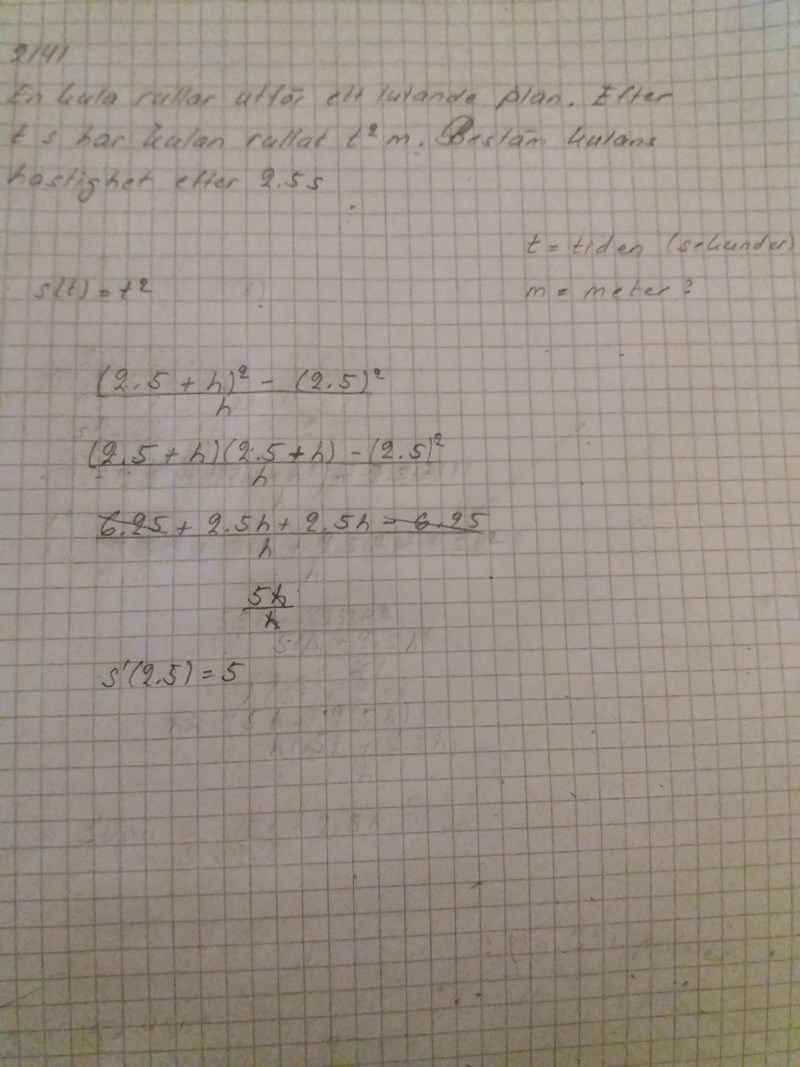 2141
En kula rullar utför ett lutande plan. Efter
t s har kulan rullat t² m. Bestäm kulans
hastighet efter 2.5 s
t = tiden (sekunder)
s(t) = t²
m = meter?
(2.5 + h)² - (2.5)²
h
(2.5 + h)(2.5 + h) - (2.5)²
h
6.25 + 2.5h + 2.5h - 6.25
h
5h
h
s'(2.5) = 5